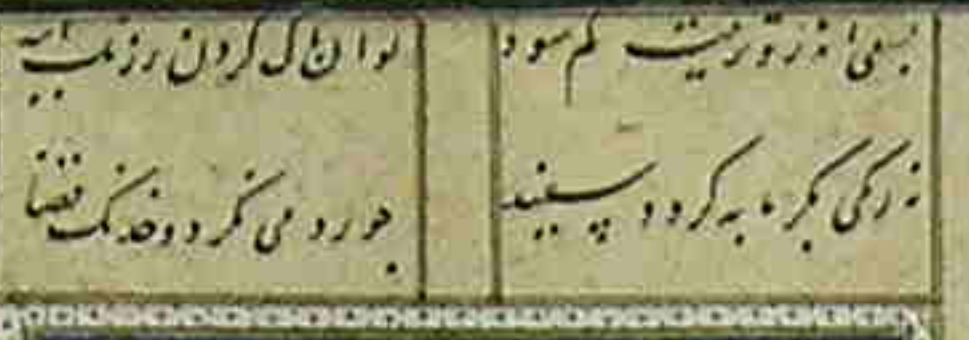 بسعی اندرو تربیت گم شود توان پاک کردن ز زنگ آینه
نه زنگی بگرمابه گردد سپید چو رد می نگردد خدنگ قضا